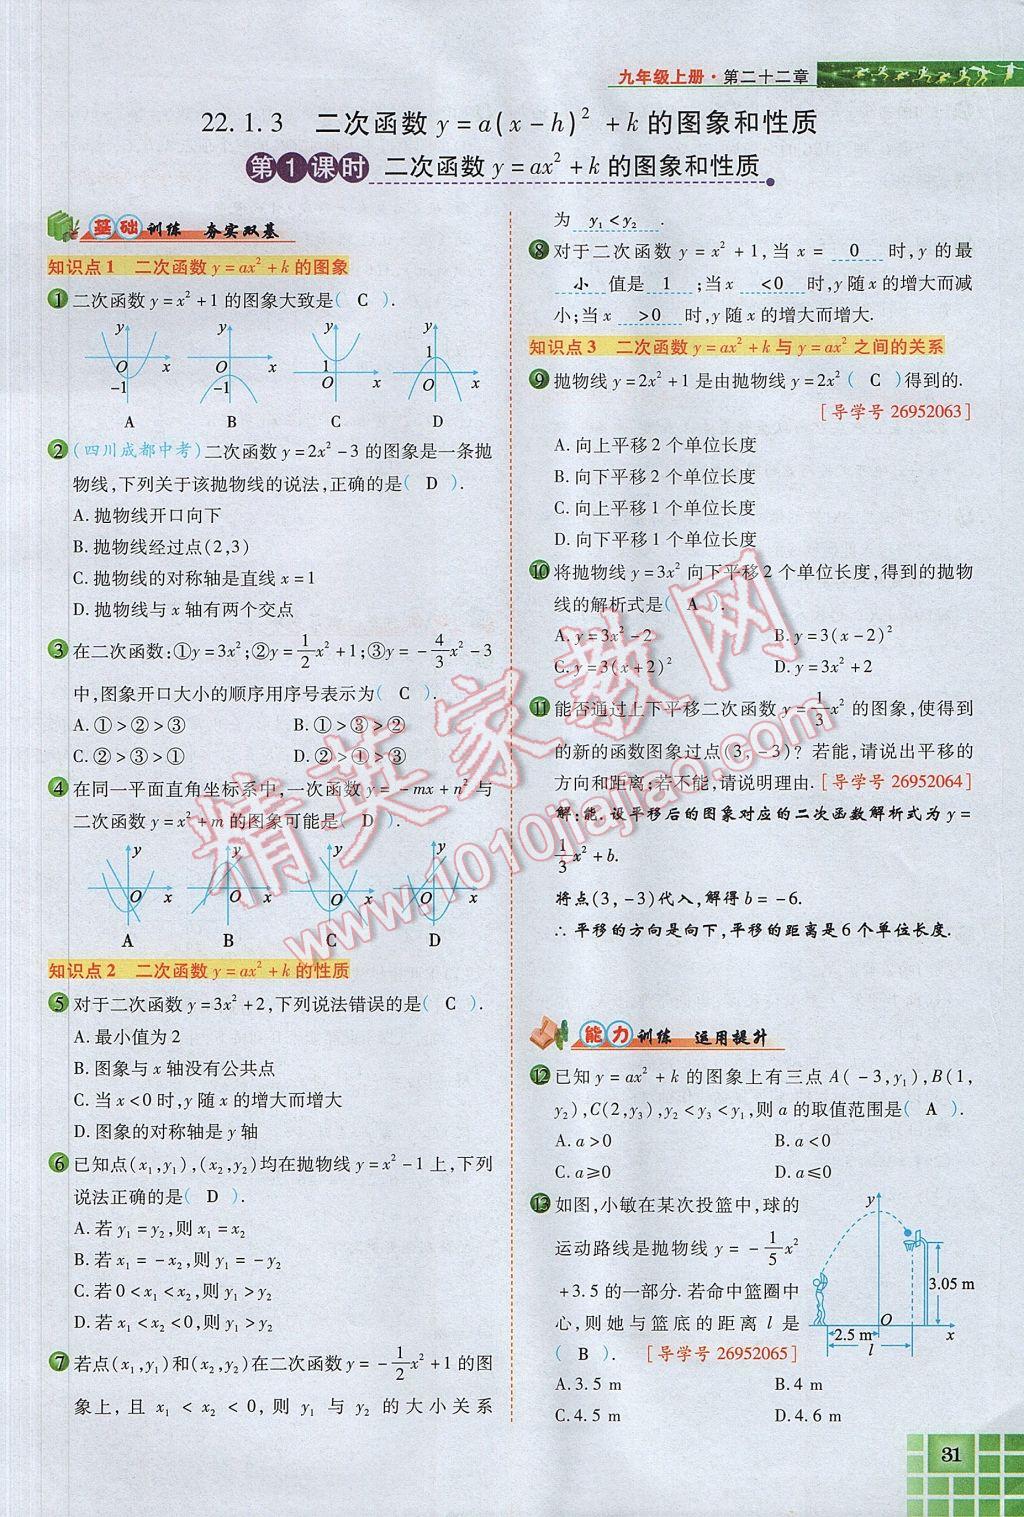 九年级上册·第二十二章
22.1.3 二次函数 y=a(x-h)²+k 的图象和性质
第1课时 二次函数 y=ax²+k 的图象和性质
基础训练 夯实双基
知识点1 二次函数 y=ax²+k 的图象
1 二次函数 y=x²+1 的图象大致是( C ).
y y y y
O x O x 1 O x 1 O x
-1 -1
A B C D
2 (四川成都中考)二次函数 y=2x²-3 的图象是一条抛
物线,下列关于该抛物线的说法,正确的是( D ).
A. 抛物线开口向下
B. 抛物线经过点(2,3)
C. 抛物线的对称轴是直线 x=1
D. 抛物线与 x 轴有两个交点
3 在二次函数:①y=3x²;②y=1/2x²+1;③y=-4/3x²-3
中,图象开口大小的顺序用序号表示为( C ).
A. ①>②>③ B. ①>③>②
C. ②>③>① D. ②>①>③
4 在同一平面直角坐标系中,一次函数 y=-mx+n² 与
二次函数 y=x²+m 的图象可能是( D ).
y y y y
O x O x O x O x
A B C D
知识点2 二次函数 y=ax²+k 的性质
5 对于二次函数 y=3x²+2,下列说法错误的是( C ).
A. 最小值为 2
B. 图象与 x 轴没有公共点
C. 当 x<0 时,y 随 x 的增大而增大
D. 图象的对称轴是 y 轴
6 已知点(x₁,y₁),(x₂,y₂)均在抛物线 y=x²-1 上,下列
说法正确的是( D ).
A. 若 y₁=y₂,则 x₁=x₂
B. 若 x₁=-x₂,则 y₁=-y₂
C. 若 0<x₁<x₂,则 y₁>y₂
D. 若 x₁<x₂<0,则 y₁>y₂
7 若点(x₁,y₁)和(x₂,y₂)在二次函数 y=-1/2x²+1 的图
象上,且 x₁<x₂<0,则 y₁ 与 y₂ 的大小关系
为 y₁<y₂ .
8 对于二次函数 y=x²+1,当 x= 0 时,y 的最
小 值是 1 ;当 x <0 时,y 随 x 的增大而减
小;当 x >0 时,y 随 x 的增大而增大.
知识点3 二次函数 y=ax²+k 与 y=ax² 之间的关系
9 抛物线 y=2x²+1 是由抛物线 y=2x²( C )得到的.
[导学号 26952063]
A. 向上平移 2 个单位长度
B. 向下平移 2 个单位长度
C. 向上平移 1 个单位长度
D. 向下平移 1 个单位长度
10 将抛物线 y=3x² 向下平移 2 个单位长度,得到的抛物
线的解析式是( A ).
A. y=3x²-2 B. y=3(x-2)²
C. y=3(x+2)² D. y=3x²+2
11 能否通过上下平移二次函数 y=1/3x² 的图象,使得到
的新的函数图象过点(3,-3)? 若能,请说出平移的
方向和距离;若不能,请说明理由. [导学号 26952064]
解:能. 设平移后的图象对应的二次函数解析式为 y=
1/3x²+b.
将点(3,-3)代入,解得 b=-6.
∴平移的方向是向下,平移的距离是 6 个单位长度.
能力训练 运用提升
12 已知 y=ax²+k 的图象上有三点 A(-3,y₁),B(1,
y₂),C(2,y₃),y₂<y₃<y₁,则 a 的取值范围是( A ).
A. a>0 B. a<0
C. a≥0 D. a≤0
13 如图,小敏在某次投篮中,球的
运动路线是抛物线 y=-1/5x²
+3.5 的一部分. 若命中篮圈中
心,则她与篮底的距离 l 是
( B ). [导学号 26952065]
y
3.05 m
O
2.5 m x
l
A. 3.5 m B. 4 m
C. 4.5 m D. 4.6 m
31
精英家教网
www.1010jiajiao.com